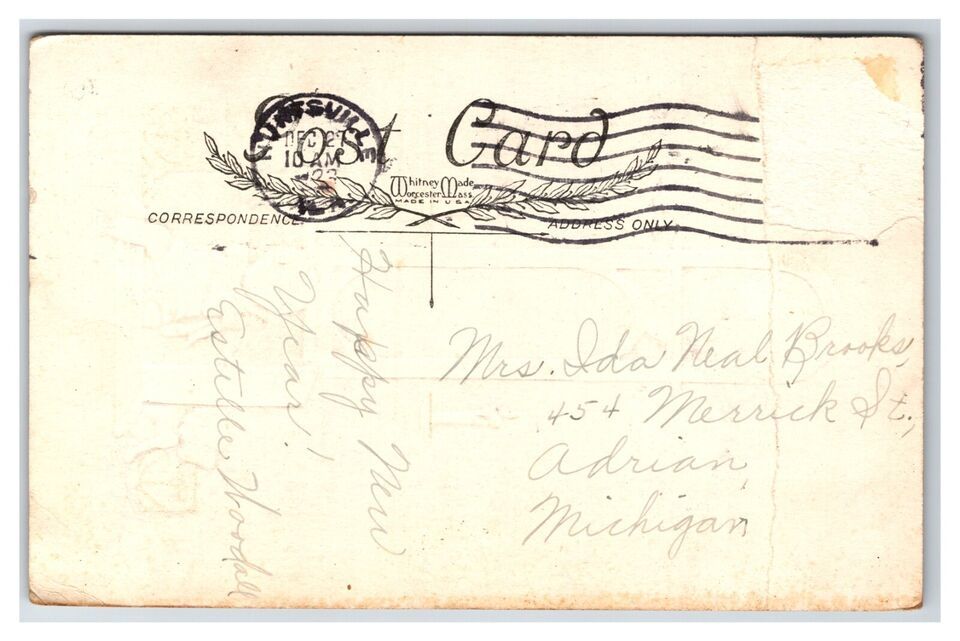 Post Card
HUNTSVILLE
DEC 27
10 AM
Whitney Made
Worcester Mass.
MADE IN U.S.A.
CORRESPONDENCE
ADDRESS ONLY
Happy New
Year!
Estelle Woodall
Mrs. Ida Neal Brooks,
454 Merrick St.,
Adrian,
Michigan